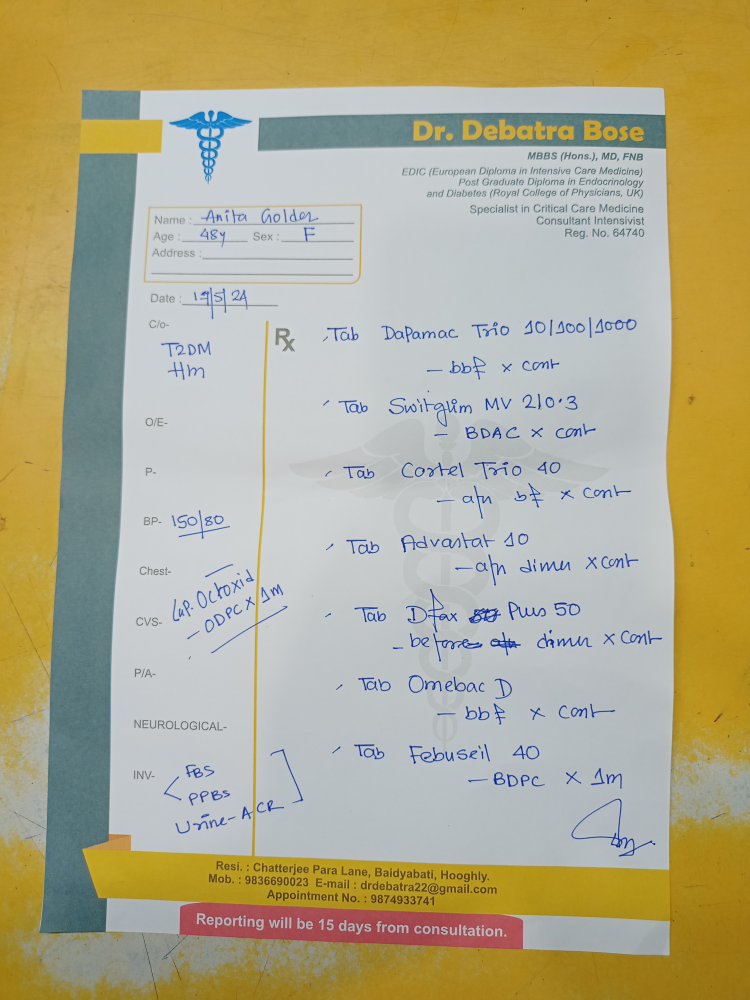 Dr. Debatra Bose
MBBS (Hons.), MD, FNB
EDIC (European Diploma in Intensive Care Medicine)
Post Graduate Diploma in Endocrinology
and Diabetes (Royal College of Physicians, UK)
Specialist in Critical Care Medicine
Consultant Intensivist
Reg. No. 64740
Name : Anita Golder
Age : 48y Sex : F
Address :
Date : 19/5/24
C/o-
T2DM
HTN
O/E-
P-
BP- 150/80
Chest-
CVS-
Cap. Octoxid
- ODPC x 1m
P/A-
NEUROLOGICAL-
INV-
FBS
PPBS
Urine - ACR
Rx
Tab Dapamac Trio 10/100/1000
- bbf x cont
Tab Switglim MV 2/0.3
- BDAC x cont
Tab Cartel Trio 40
- a/n bf x cont
Tab Advastat 10
- a/n dinner x cont
Tab Dfax Plus 50
- before dinner x cont
Tab Omebac D
- bbf x cont
Tab Febuseil 40
- BDPC x 1m
Resi. : Chatterjee Para Lane, Baidyabati, Hooghly.
Mob. : 9836690023 E-mail : drdebatra22@gmail.com
Appointment No. : 9874933741
Reporting will be 15 days from consultation.